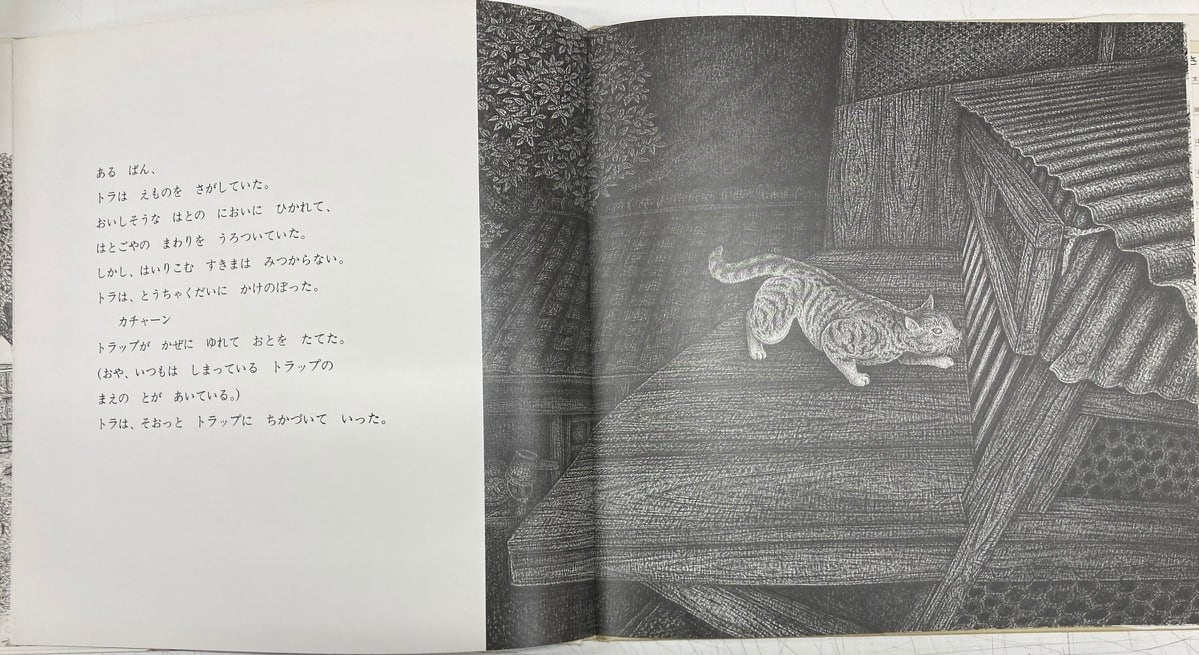 ある　ばん、
トラは　えものを　さがしていた。
おいしそうな　はとの　においに　ひかれて、
はとごやの　まわりを　うろついていた。
しかし、はいりこむ　すきまは　みつからない。
トラは、とうちゃくだいに　かけのぼった。
カチャーン
トラップが　かぜに　ゆれて　おとを　たてた。
(おや、いつもは　しまっている　トラップの
まえの　とが　あいている。)
トラは、そおっと　トラップに　ちかづいて　いった。